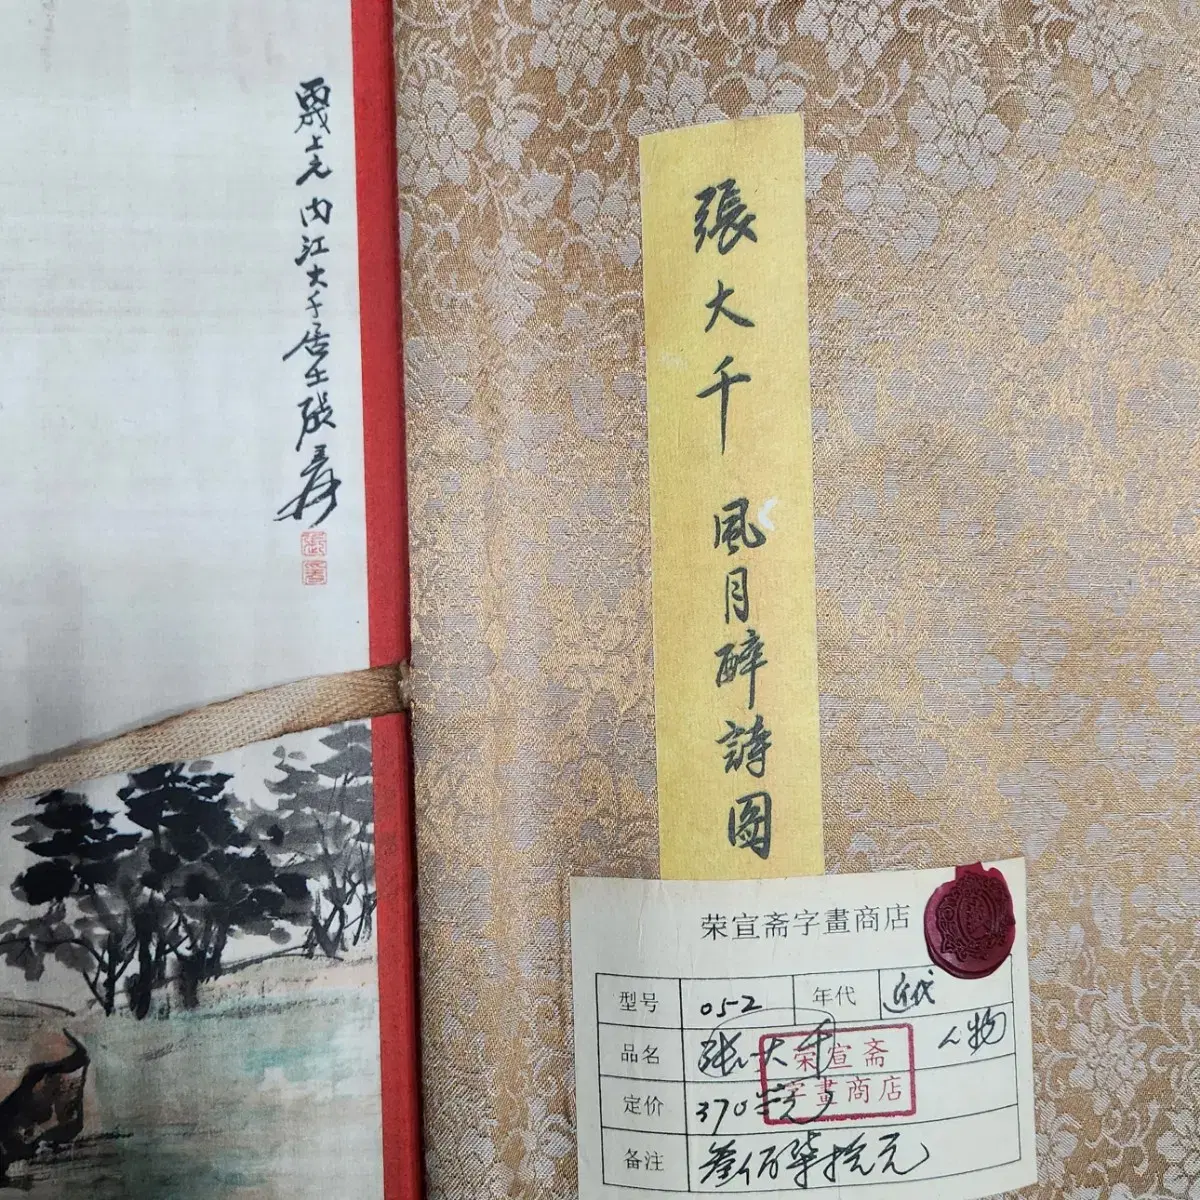 上元 内江大千居士張爰
張大千 風月醉詩圖
荣宣斋字畫商店
型号 052 年代 近代
品名 张大千 人物
定价 370元
备注 叁佰柒拾元
荣宣斋
字畫商店